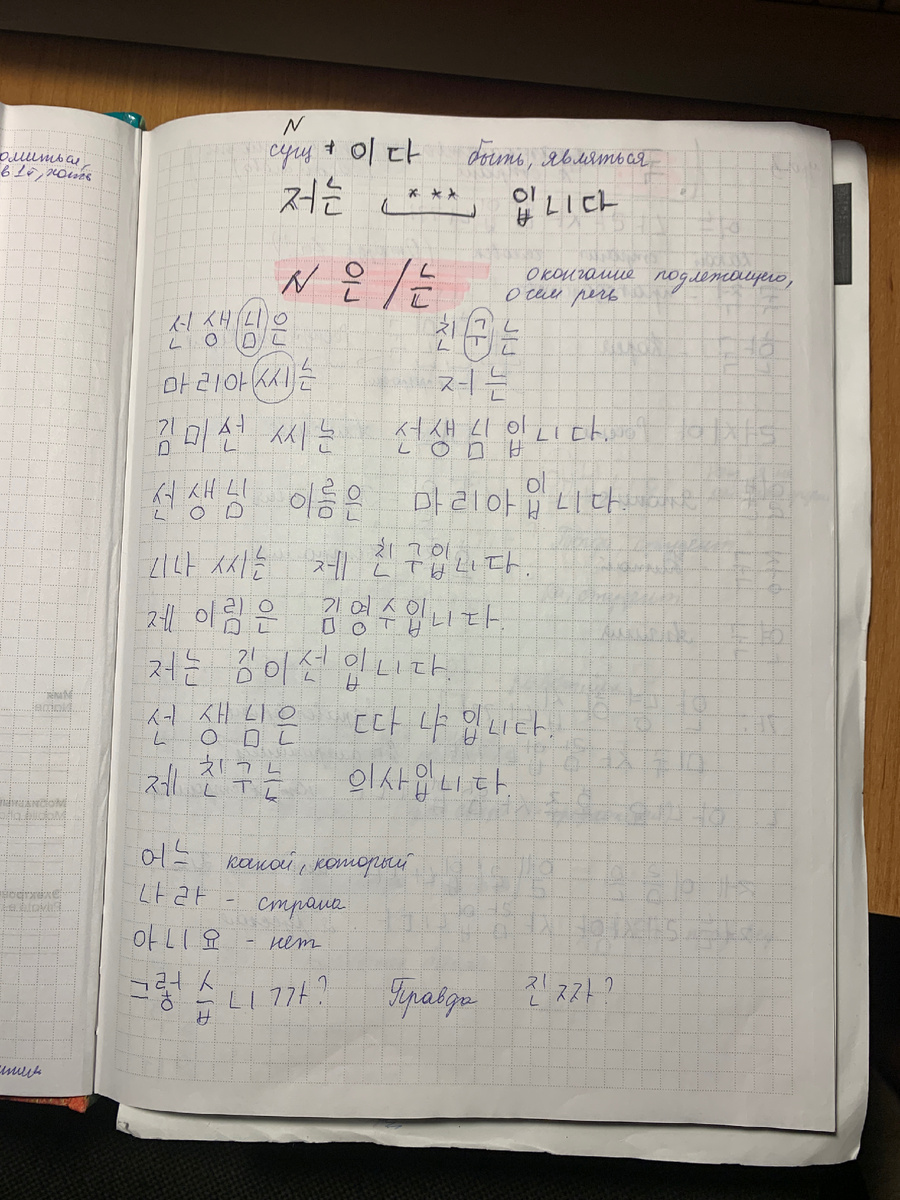 омиться,
N
сущ + 이다 быть, являться
저는 *** 입니다
N 은/는 окончание подлежащего,
о чём речь
선생님은 친구는
마리아 씨는 저는
김미선 씨는 선생님입니다.
선생님 이름은 마리아입니다.
니나 씨는 제 친구입니다.
제 이림은 김영수입니다.
저는 김이선입니다.
선생님은 냐입니다.
제 친구는 의사입니다.
어느 какой, который
나라 - страна
아니요 - нет
그렇습니까? Правда 진짜?